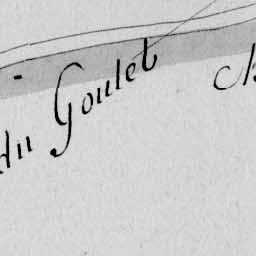 du Goulet